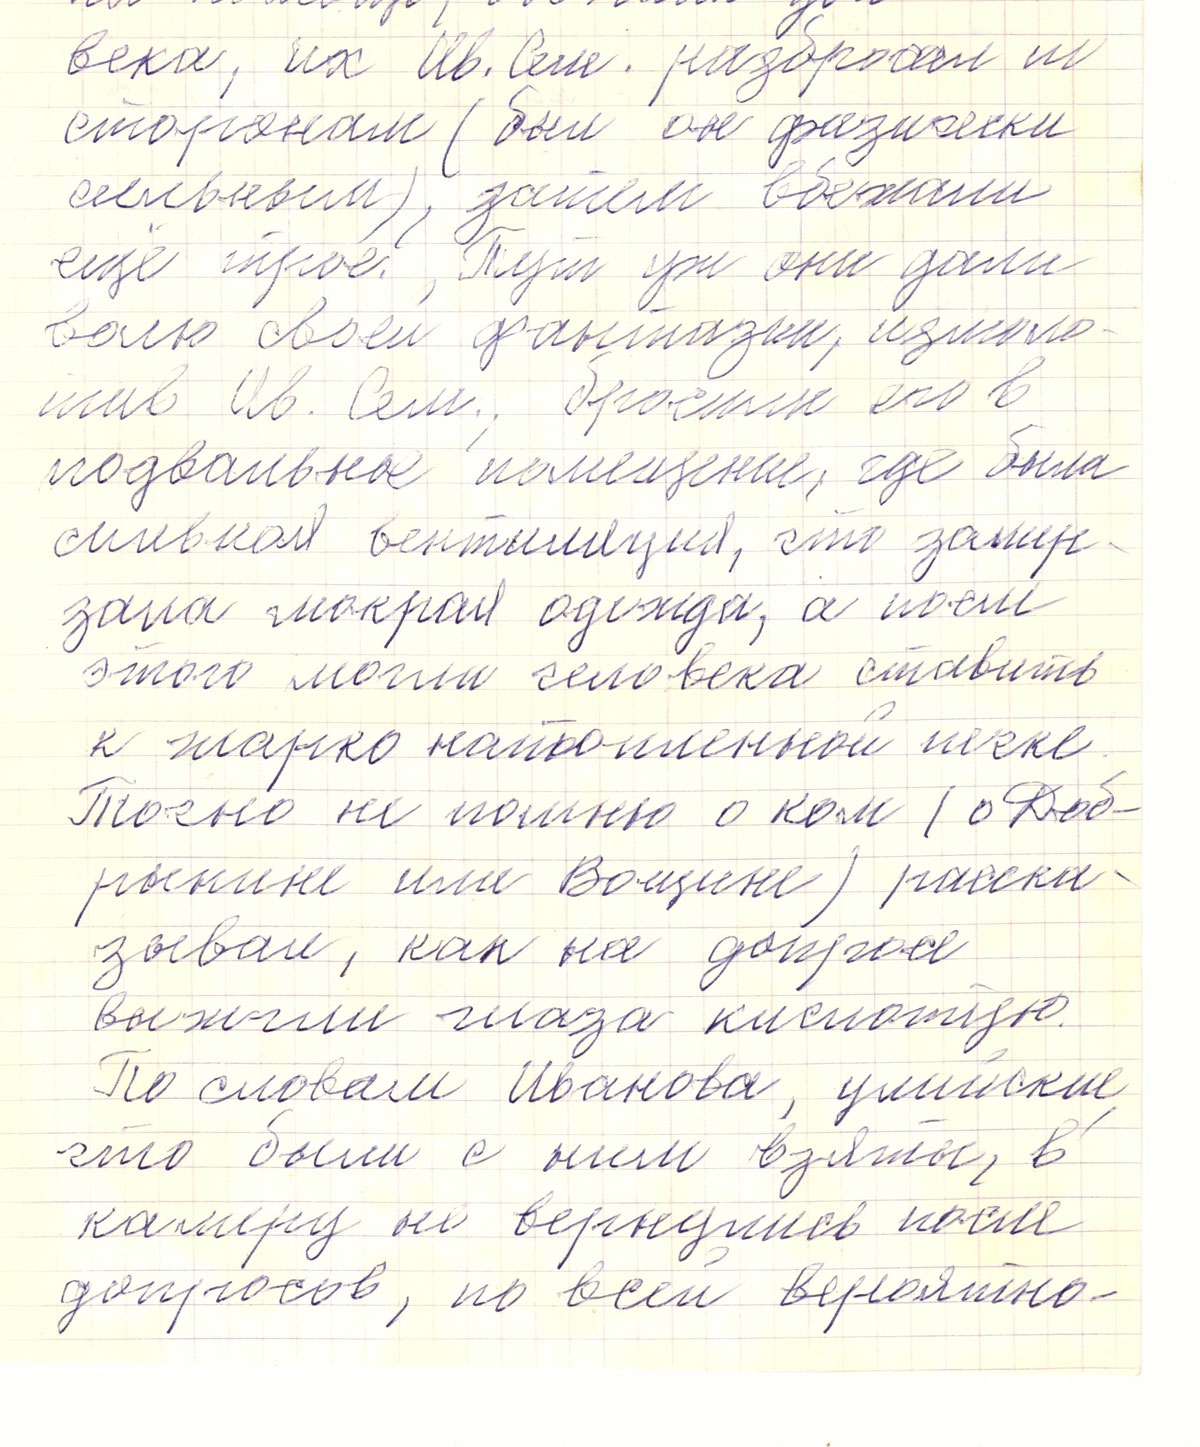 века, их Ив. Сем. разбросал по
сторонам (был он физически
сильным), затем вбежали
ещё трое. Тут уж они дали
волю своей фантазии, измоло-
тив Ив. Сем., бросили его в
подвальное помещение, где была
сильная вентиляция, что замер-
зала мокрая одежда, а после
этого могли человека ставить
к жарко натопленной печке.
Точно не помню о ком (о Доб-
рынине или Вощине) расска-
зывал, как на допросе
выжгли глаза кислотою.
По словам Иванова, улийские,
что были с ним взяты, в
камеру не вернулись после
допросов, по всей вероятно-